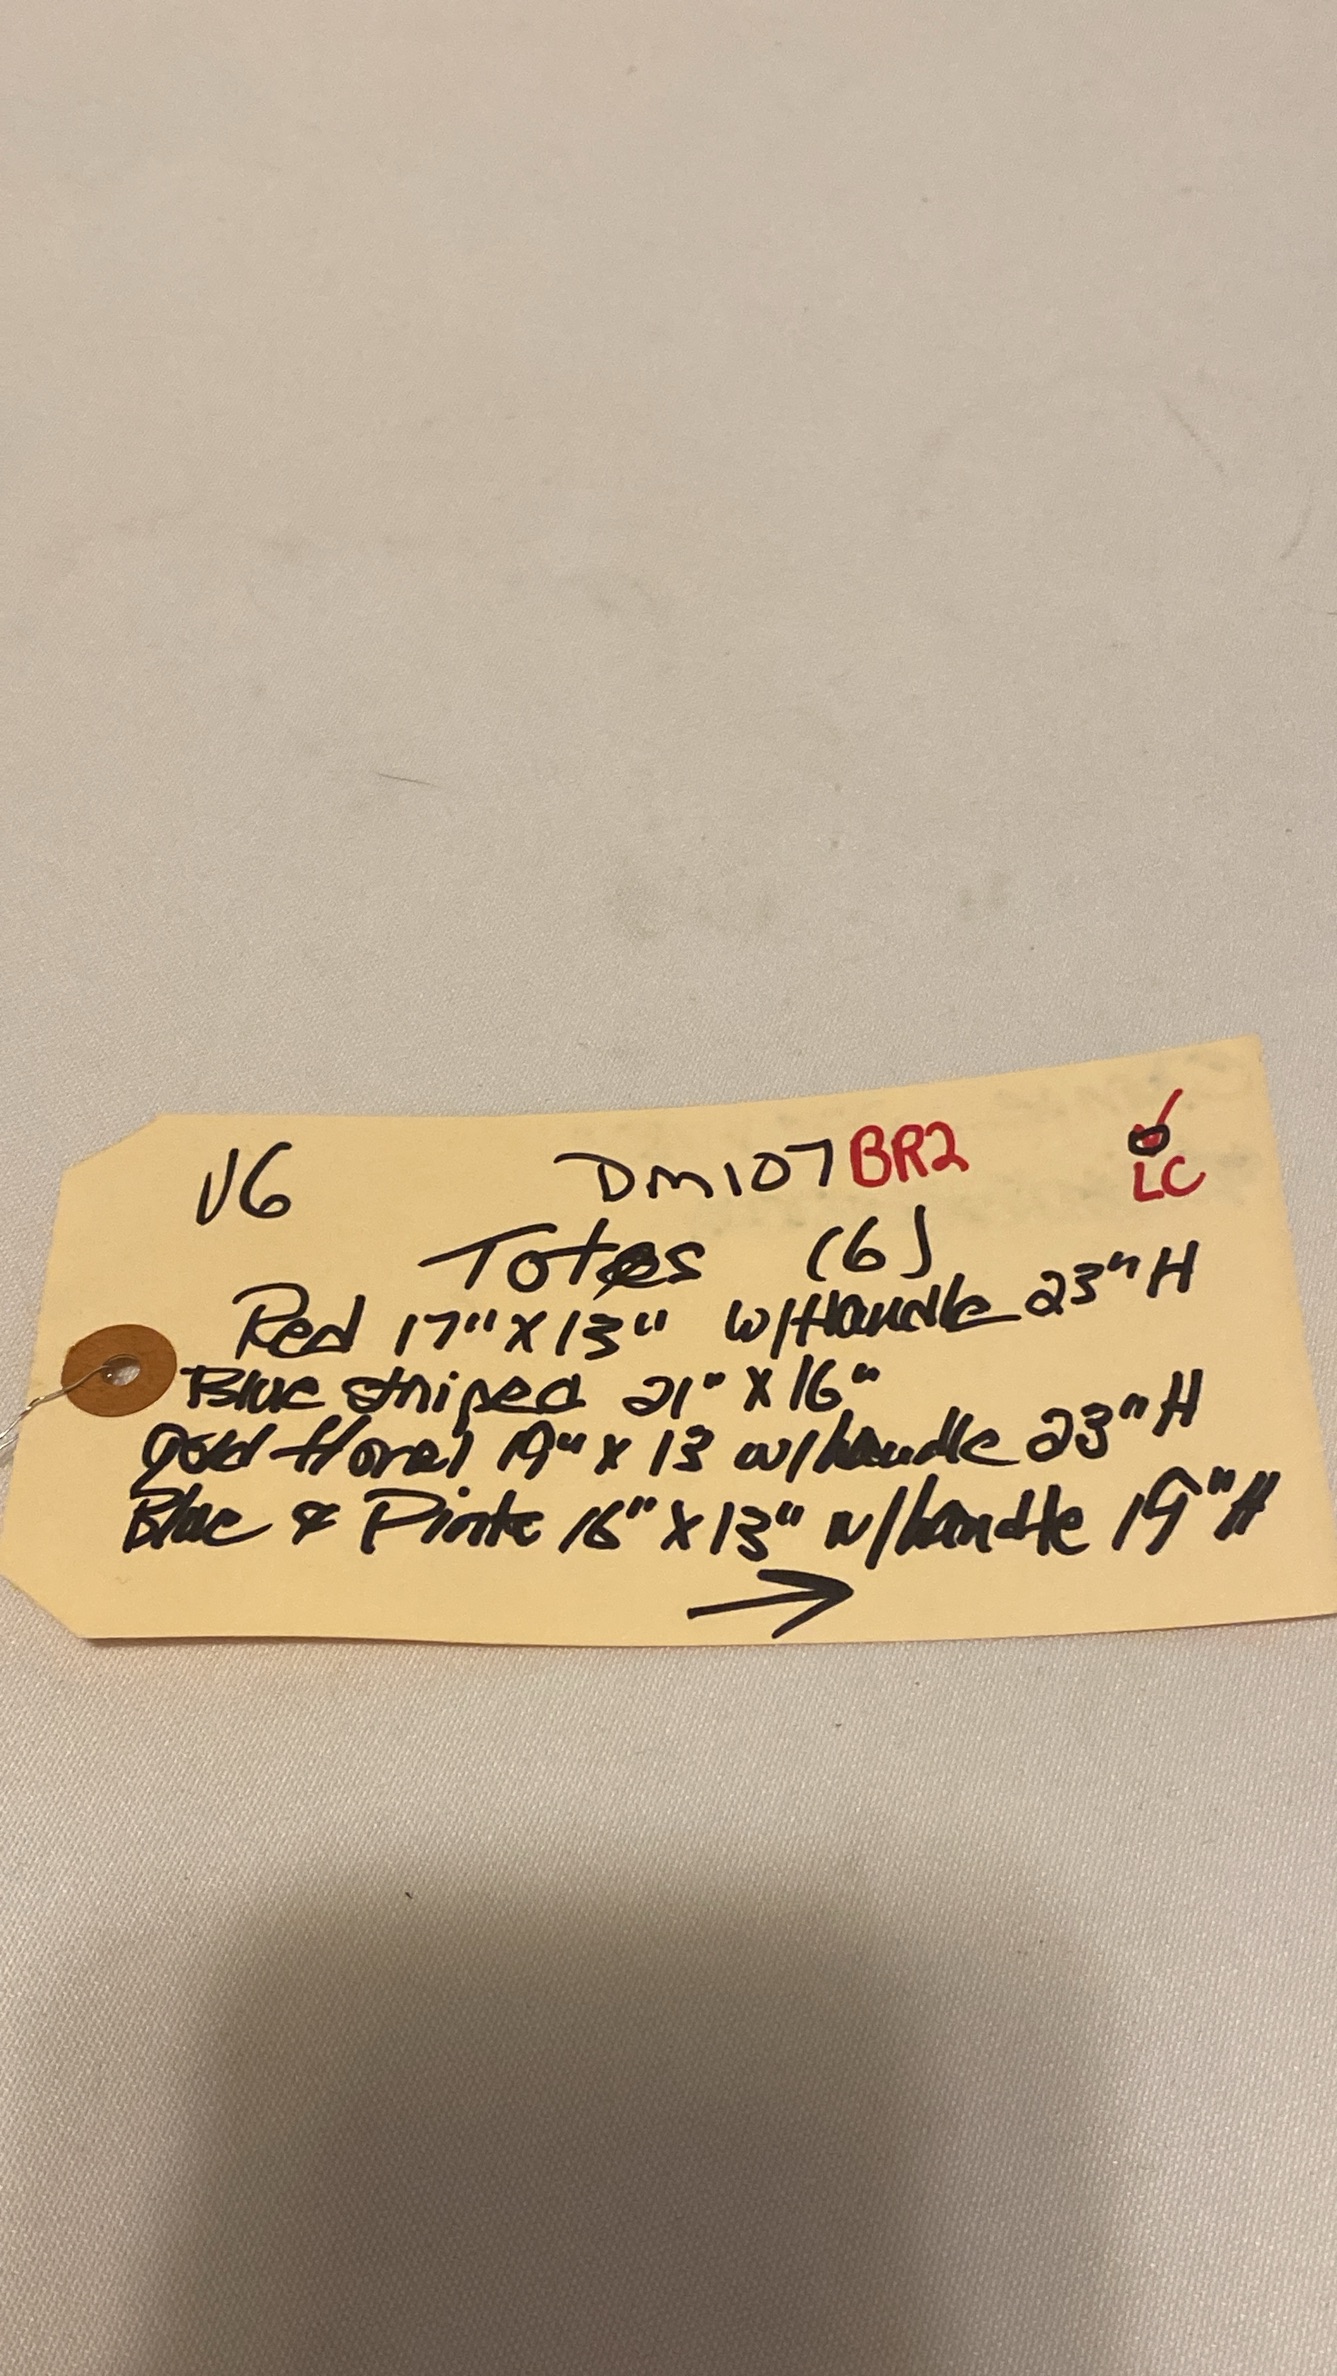 V6 DM107 BR2 LC
Totes (6)
Red 17" X 13" w/Handle 23" H
Blue striped 21" X 16"
gold floral 19" x 13 w/handle 23" H
Blue & Pink 16" X 13" w/handle 19" H